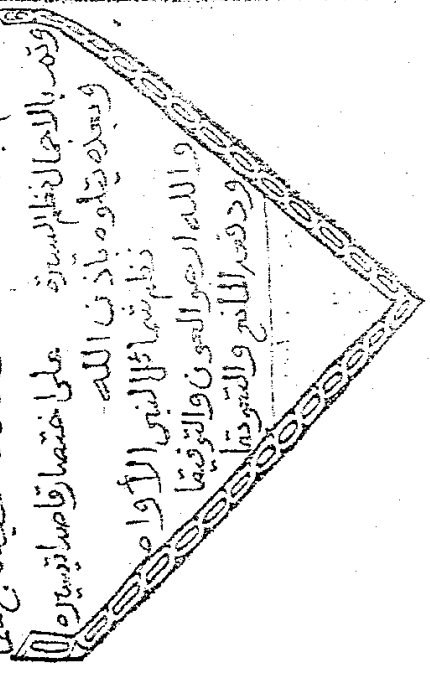 وتم بالاجمال نظم السيرة على اختصار قاصدا تيسيره
وبعده يتلوه باذن الله
نظم شمائل النبي الأواه
والله ارجو العون والتوفيقا
ودفع المانع والتعويقا